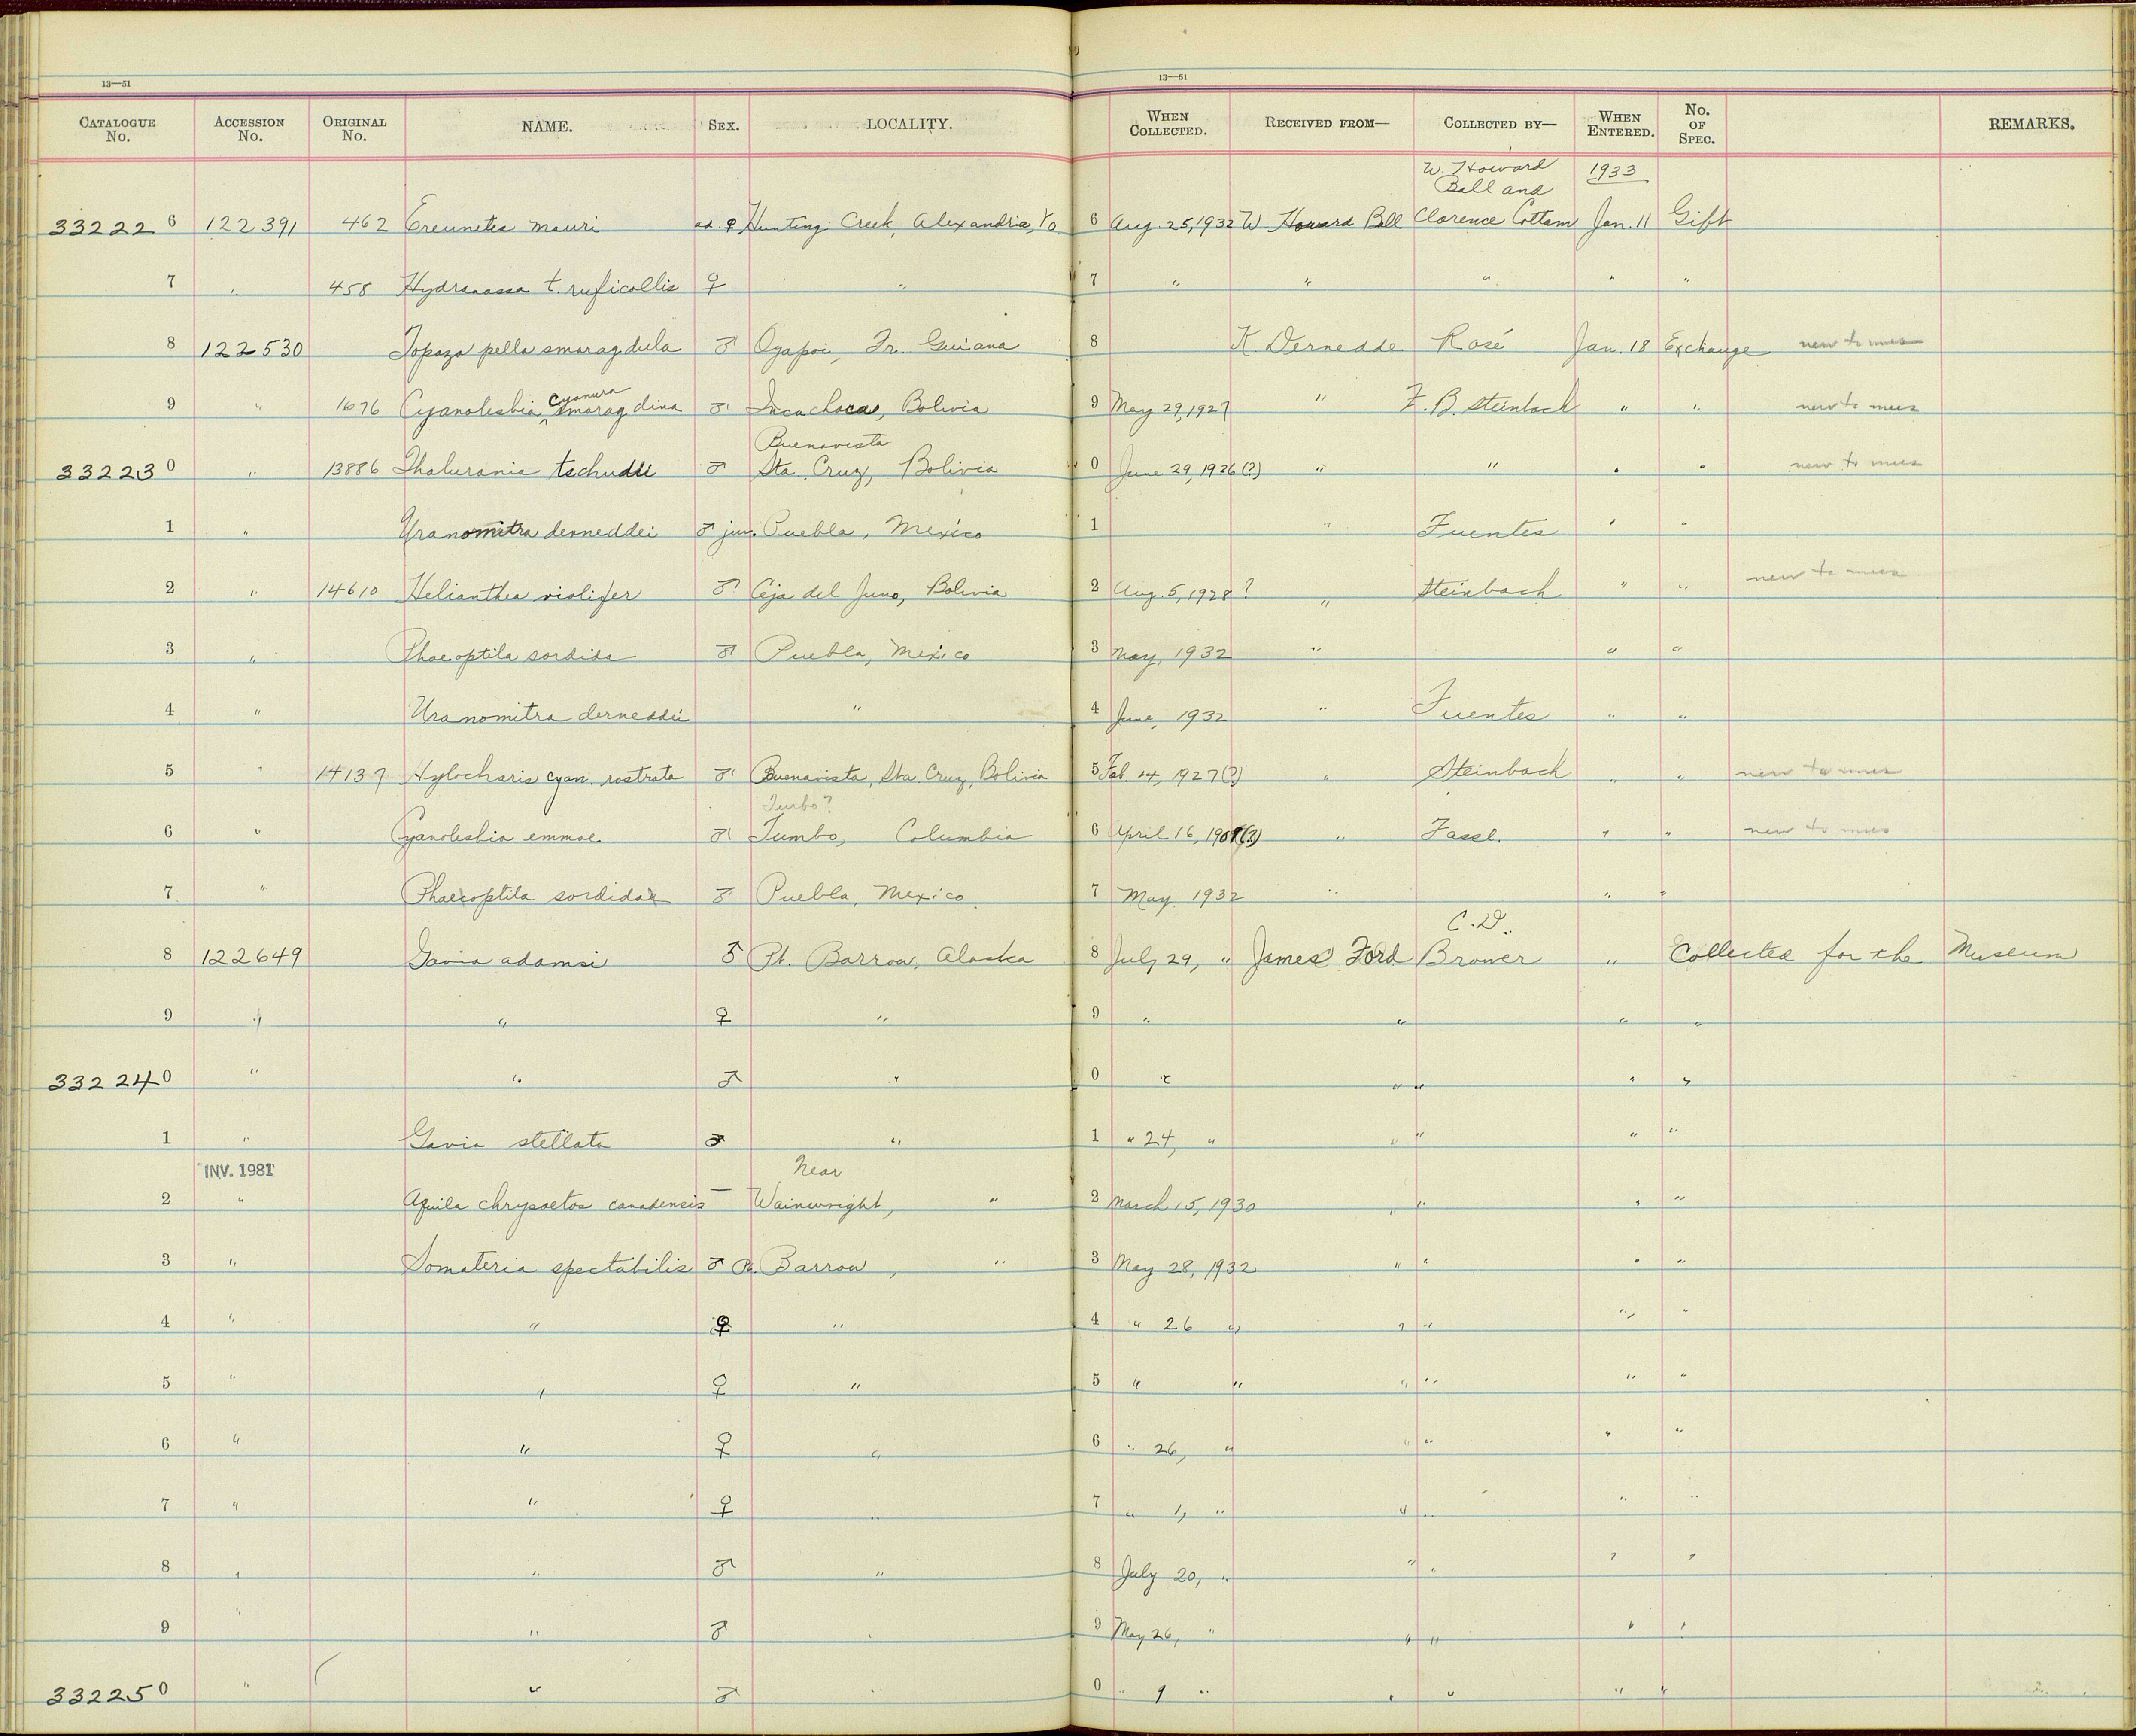 13—51
13—51
CATALOGUE No. ACCESSION No. ORIGINAL No. NAME. SEX. LOCALITY. WHEN COLLECTED. RECEIVED FROM— COLLECTED BY— WHEN ENTERED. No. OF SPEC. REMARKS.
W. Howard 1933
Ball and
332226 122391 462 Ereunetes mauri ad. ♀ Hunting Creek, Alexandria, Va 6 Aug. 25, 1932 W. Howard Ball Clarence Cottam Jan. 11 Gift
7 " 458 Hydranassa t. ruficollis ♀ " 7 " " " " "
8 122530 Topaza pella smaragdula ♂ Oyapoi, Fr. Guiana 8 K. Dernedde Rosé Jan. 18 Exchange new to mus
cyanura
9 " 1676 Cyanolesbia ^ smaragdina ♂ Incachaca, Bolivia 9 May 29, 1927 " F. B. Steinbach " " new to mus
Buenavista
332230 " 13886 Thalurania tschudii ♂ Sta. Cruz, Bolivia 0 June 29, 1926(?) " " " " new to mus
1 " Uranomitra derneddei ♂ juv. Puebla, Mexico 1 " Fuentes " "
2 " 14610 Helianthea violifer ♂ Ceja del Juno, Bolivia 2 Aug. 5, 1928? " Steinbach " " new to mus
3 " Phaeoptila sordida ♂ Puebla, Mexico 3 May, 1932 " " "
4 " Uranomitra derneddei " 4 June, 1932 " Fuentes " "
5 " 14137 Hylocharis cyan. rostrata ♂ Buenavista, Sta. Cruz, Bolivia 5 Feb. 14, 1927(?) " Steinbach " " new to mus
Turbo?
6 " Cyanolesbia emmae ♂ Tumbo, Columbia 6 April 16, 1909(?) " Fassl. " " new to mus
7 " Phaeoptila sordidae ♂ Puebla, Mexico 7 May 1932 " " "
C. D.
8 122649 Gavia adamsi ♂ Pt. Barrow, Alaska 8 July 29, " James Ford Brower " Collected for the Museum
9 " " ♀ " 9 " " " "
332240 " " ♂ " 0 " " " " "
1 " Gavia stellata ♂ " 1 " 24, " " " " "
INV. 1981 Near
2 " Aquila chrysaetos canadensis — Wainwright, " 2 March 15, 1930 " " " "
3 " Somateria spectabilis ♂ Pt. Barrow, " 3 May 28, 1932 " " " "
4 " " ♀ " 4 " 26 " " " " "
5 " " ♀ " 5 " " " " " "
6 " " ♀ " 6 " 26, " " " " "
7 " " ♀ " 7 " 1, " " " " "
8 " " ♂ " 8 July 20, " " " " "
9 " " ♂ " 9 May 26, " " " " "
332250 " " ♂ " 0 " 9 " " " " "